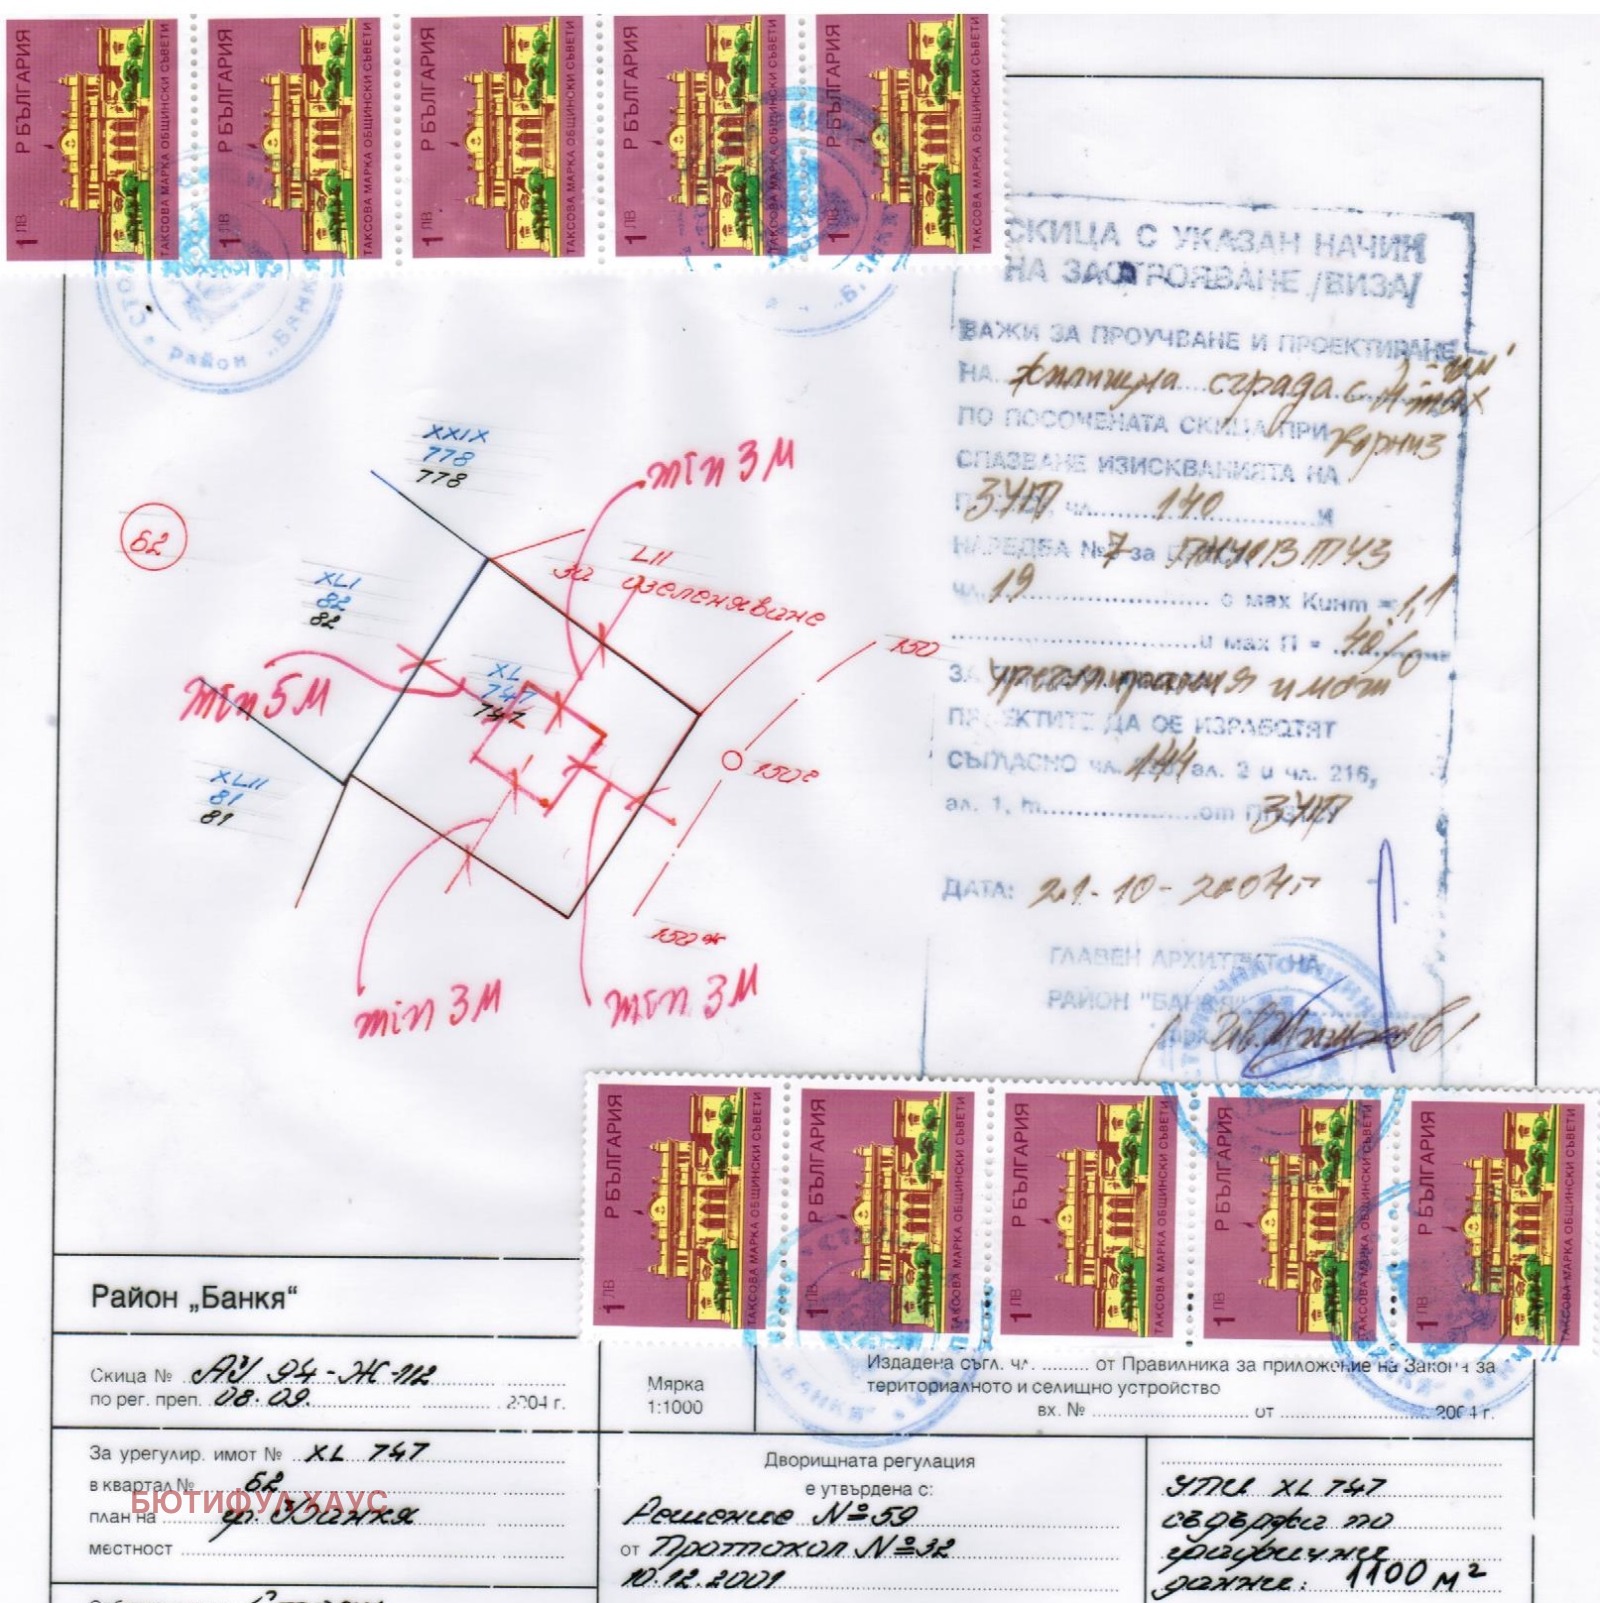 1 ЛВ Р БЪЛГАРИЯ ТАКСОВА МАРКА ОБЩИНСКИ СЪВЕТИ
1 ЛВ Р БЪЛГАРИЯ ТАКСОВА МАРКА ОБЩИНСКИ СЪВЕТИ
1 ЛВ Р БЪЛГАРИЯ ТАКСОВА МАРКА ОБЩИНСКИ СЪВЕТИ
1 ЛВ Р БЪЛГАРИЯ ТАКСОВА МАРКА ОБЩИНСКИ СЪВЕТИ
1 ЛВ Р БЪЛГАРИЯ ТАКСОВА МАРКА ОБЩИНСКИ СЪВЕТИ
район „БАНКЯ
СКИЦА С УКАЗАН НАЧИН
НА ЗАСТРОЯВАНЕ /ВИЗА/
ВАЖИ ЗА ПРОУЧВАНЕ И ПРОЕКТИРАНЕ
НА жилищна сграда с
ПО ПОСОЧЕНАТА СКИЦА ПРИ корниз
СПАЗВАНЕ ИЗИСКВАНИЯТА НА
ЗУТ, чл. 140 и
НАРЕДБА № 7 за
чл. 19 с max Kинт = 1,1
и max П = 40%
ЗА урегулирания имот
ПРОЕКТИТЕ ДА СЕ ИЗРАБОТЯТ
СЪГЛАСНО чл. 144 ал. 2 и чл. 216,
ал. 1, т. от ЗУТ
ДАТА: 21-10-2004г
ГЛАВЕН АРХИТЕКТ НА
РАЙОН "БАНКЯ"
XXIX
778
778
min 3 м
62
LII
озеленяване
XLI
82
82
XL
747
747
min 5 м
150
150г
XLII
81
81
150ж
min 3 м
min 3 м
1 ЛВ Р БЪЛГАРИЯ ТАКСОВА МАРКА ОБЩИНСКИ СЪВЕТИ
1 ЛВ Р БЪЛГАРИЯ ТАКСОВА МАРКА ОБЩИНСКИ СЪВЕТИ
1 ЛВ Р БЪЛГАРИЯ ТАКСОВА МАРКА ОБЩИНСКИ СЪВЕТИ
1 ЛВ Р БЪЛГАРИЯ ТАКСОВА МАРКА ОБЩИНСКИ СЪВЕТИ
1 ЛВ Р БЪЛГАРИЯ ТАКСОВА МАРКА ОБЩИНСКИ СЪВЕТИ
Район „Банкя“
Скица № АУ 94-Ж-112
по рег. преп. 08.09. 2004 г.
Мярка
1:1000
Издадена съгл. чл. от Правилника за приложение на Закона за
териториалното и селищно устройство
вх. № от 2004 г.
За урегулир. имот № XL 747
в квартал № 62
план на гр. Банкя
местност
БЮТИФУЛ ХАУС
Дворищната регулация
е утвърдена с:
Решение №59
от Протокол №32
10.12.2001
УПИ XL 747
съдържа по
графични
данни: 1100 м²